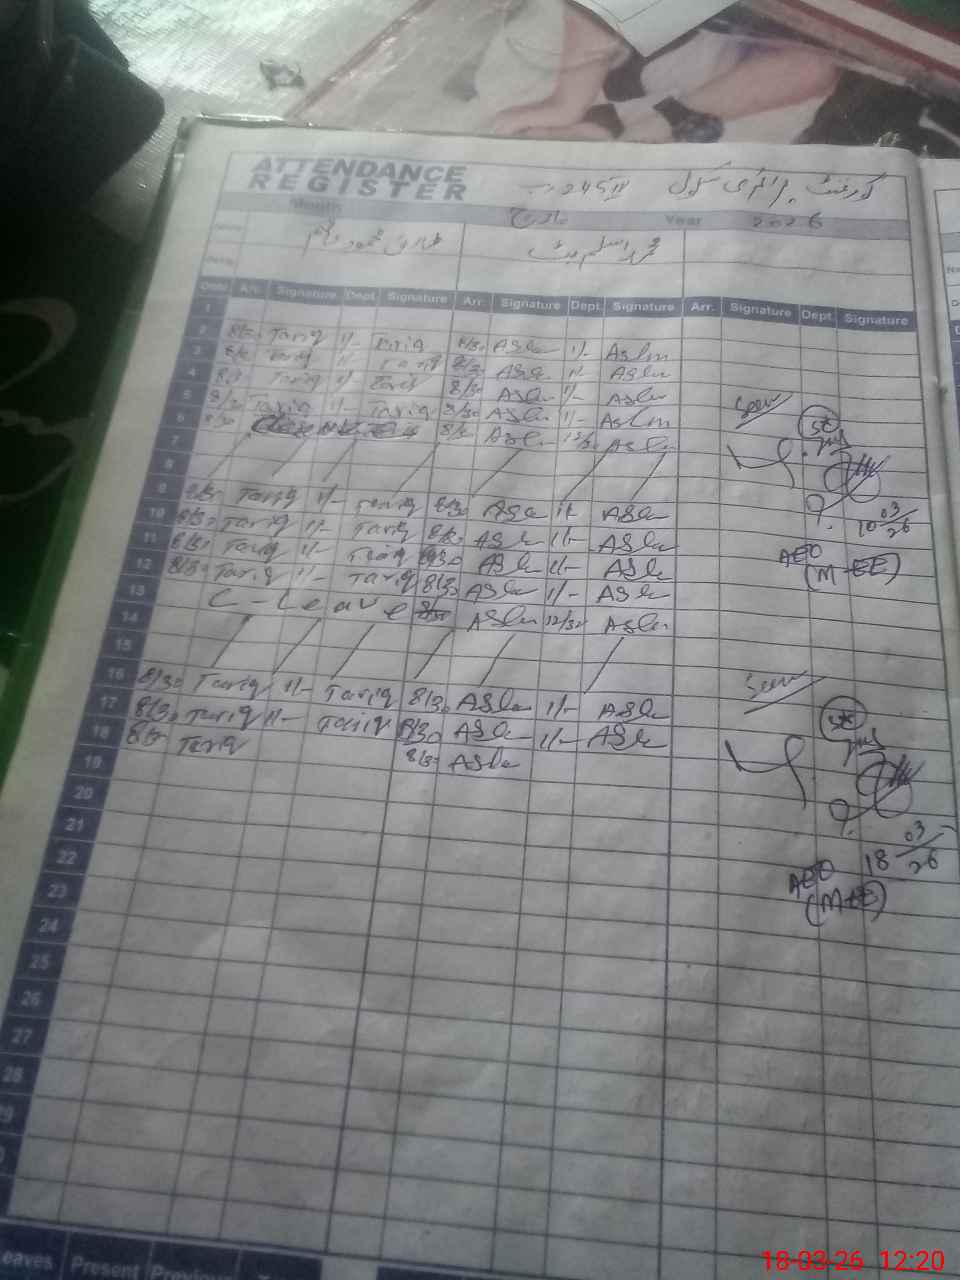 ATTENDANCE
REGISTER
گورنمنٹ پرائمری سکول 245
Month مارچ Year 2026
محمد اسلم
Date Arr. Signature Dept. Signature Arr. Signature Dept. Signature Arr. Signature Dept. Signature
1
2 8/30 Tariq 1/- Tariq 8/30 Aslm 1/- Aslm
3 Tariq 1/- Tariq 8/30 Aslm 1/- Aslm
4 8/30 Tariq 1/- Tariq 8/30 Aslm 1/- Aslm
5 8/30 Tariq 1/- Tariq 8/30 Aslm 1/- Aslm Seen
6 8/30 8/30 Aslm 12/30 Aslm
7
8
9 8/30 Tariq 1/- Tariq 8/30 Aslm 1/- Aslm
10 8/30 Tariq 1/- Tariq 8/30 Aslm 1/- Aslm 10 03/26
11 8/30 Tariq 1/- Tariq 8/30 Aslm 1/- Aslm AEO
12 8/30 Tariq 1/- Tariq 8/30 Aslm 1/- Aslm (M-EE)
13 C-Leave 8/30 Aslm 12/30 Aslm
14
15
16 8/30 Tariq 1/- Tariq 8/30 Aslm 1/- Aslm Seen
17 8/30 Tariq 1/- Tariq 8/30 Aslm 1/- Aslm
18 8/30 Tariq 8/30 Aslm
19
20
21
22 18 03/26
23 AEO
24 (M-EE)
25
26
27
28
29
Leaves Present Previous
18-03-26 12:20